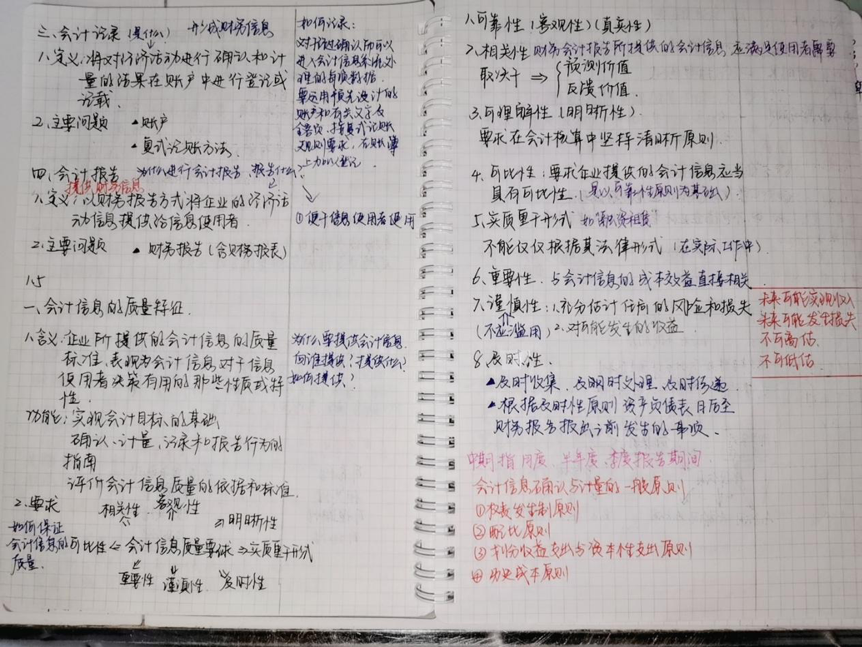 三、会计记录 (是什么) 形成财务信息
1.定义:将对经济活动进行确认和计
量的结果在账户中进行登记或
记载.
2.主要问题 ▲账户
▲复式记账方法.
四、会计报告 为什么进行会计报告 报告什么
提供财务信息
1.定义:以财务报告方式将企业的经济活
动信息提供给信息使用者.
2.主要问题 ▲财务报告(含财务报表)
如何记录:
对经过确认而可以
进入会计信息系统处
理的每项数据.
要运用预先设计的
账户和有关文字及
金额, 按复式记账
规则要求, 在账簿
上加以登记
①便于信息使用者使用
1.5
一、会计信息的质量特征.
1.含义:企业所提供的会计信息的质量
标准,表现为会计信息对于信息
使用者决策有用的那些性质或特
性.
功能:实现会计目标的基础
确认、计量,记录和报告行为的
指南
评价会计信息质量的依据和标准.
为什么要提供会计信息
向谁提供?提供什么?
如何提供?
2.要求
如何保证
会计信息的
质量.
相关性 客观性
明晰性
可比性 ⇐ 会计信息质量要求 ⇒ 实质重于形式
重要性 谨慎性 及时性
1.可靠性(客观性)(真实性)
2.相关性 财务会计报告所提供的会计信息应满足使用者需要
取决于 ⇒ { 预测价值
反馈价值.
3.可理解性(明晰性).
要求在会计核算中坚持清晰原则.
4.可比性:要求企业提供的会计信息应当
具有可比性.(是以可靠性原则为基础).
5.实质重于形式 如融资租赁
不能仅仅根据其法律形式(在实际工作中)
6.重要性. 与会计信息的成本效益直接相关.
7.谨慎性:1.充分估计任何的风险和损失
(不应滥用) 2.对可能发生的收益
未来可能实现收入
未来可能发生损失
不可高估.
不可低估.
8.及时性.
▲及时收集、及时处理、及时传递.
▲根据及时性原则 资产负债表日后至
财务报告报出之前发生的事项.
中期指月度、半年度、季度报告期间
会计信息确认与计量的一般原则
①权责发生制原则
②配比原则
③划分收益支出与资本性支出原则
④历史成本原则